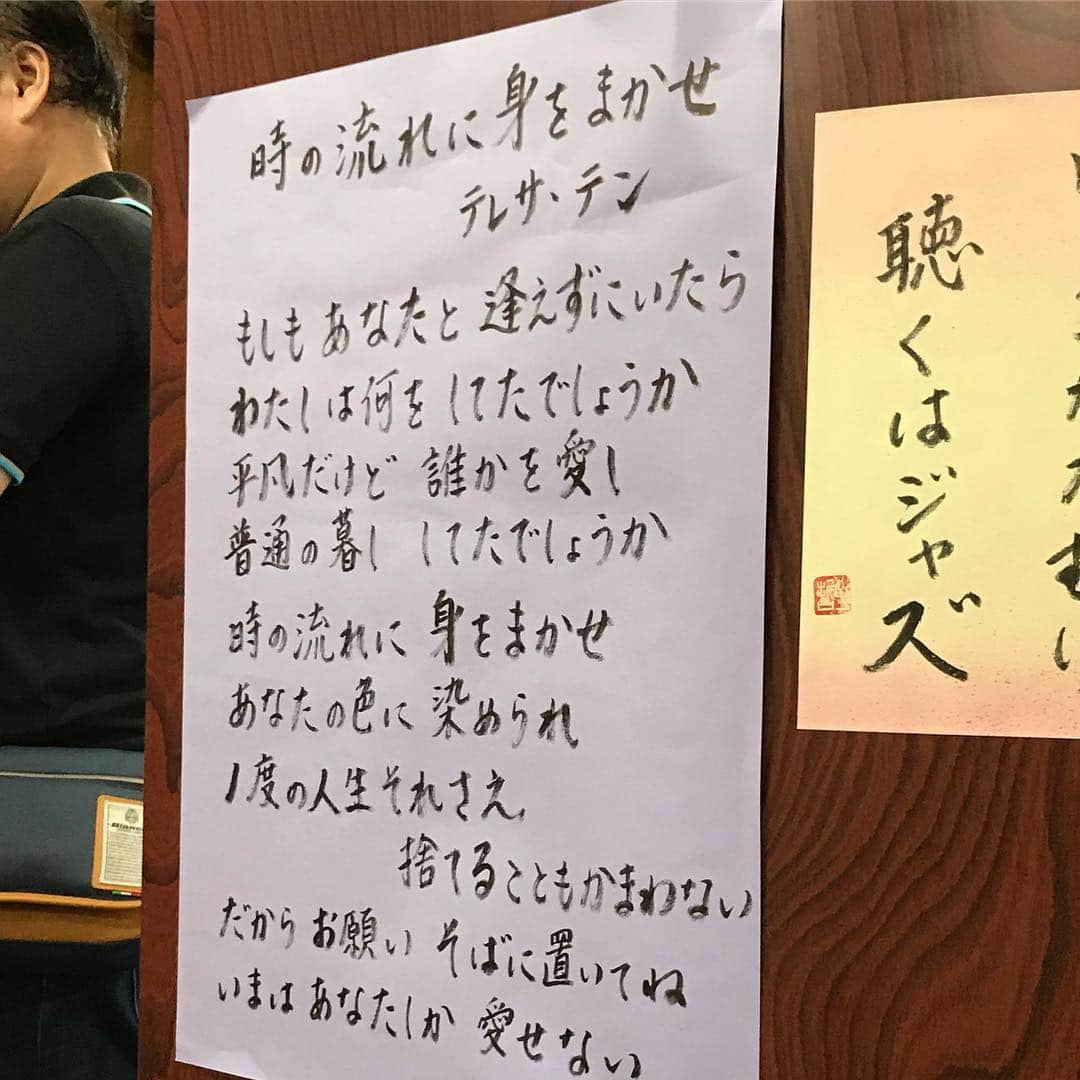 時の流れに身をまかせ
テレサ・テン
もしもあなたと逢えずにいたら
わたしは何をしてたでしょうか
平凡だけど 誰かを愛し
普通の暮し してたでしょうか
時の流れに 身をまかせ
あなたの色に 染められ
1度の人生それさえ
捨てることもかまわない
だから お願い そばに置いてね
いまは あなたしか 愛せない
聴くはジャズ